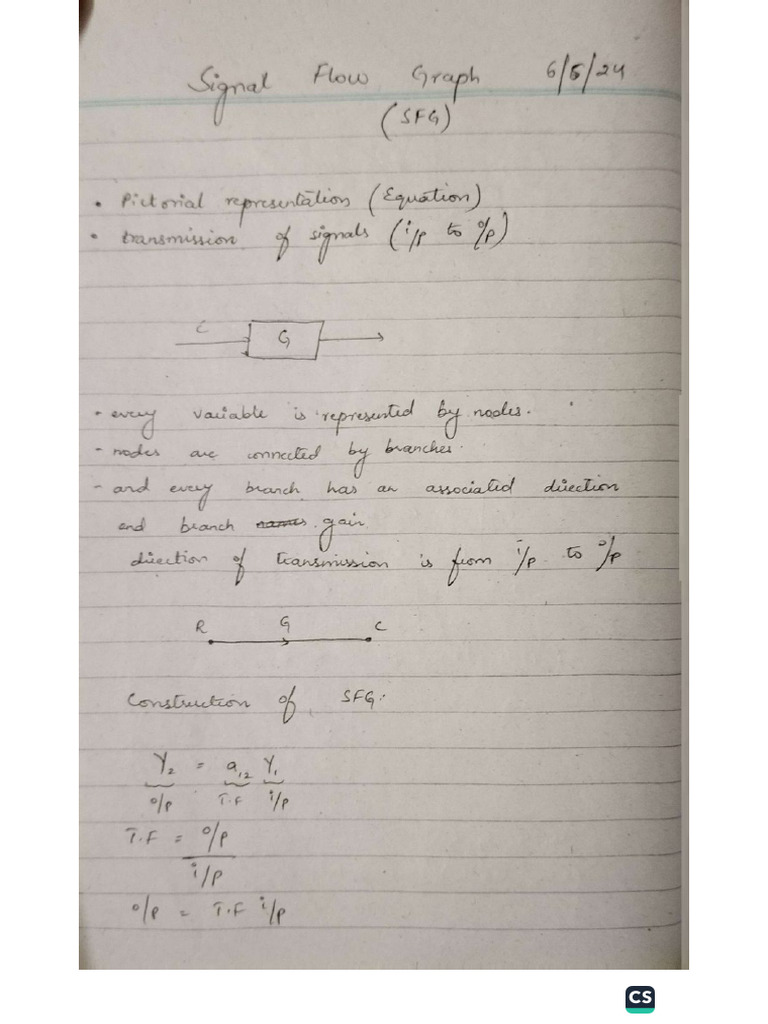 Signal Flow Graph 6/5/24
(SFG)
• Pictorial representation (Equation)
• transmission of signals (i/p to o/p)
C
G
• every variable is represented by nodes.
- nodes are connected by branches.
- and every branch has an associated direction
and branch names gain.
direction of transmission is from i/p to o/p
R G C
Construction of SFG:
Y2 = a12 Y1
o/p T.F i/p
T.F = o/p
i/p
o/p = T.F i/p
CS